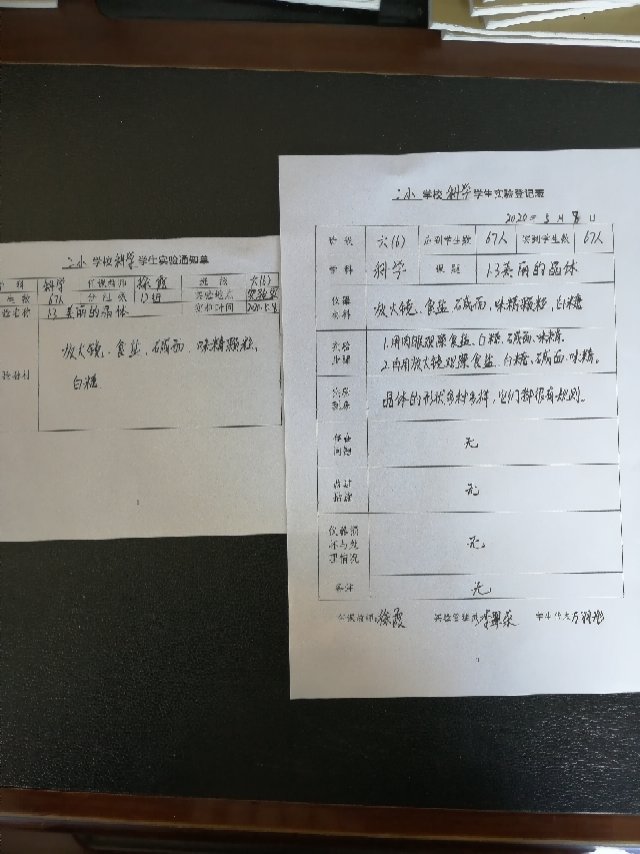 三小 学校 科学 学生实验通知单
学 科 科学 任课教师 徐霞 班级 六(6)
生数 67人 分组数 12组 实验地点 实验室
验名称 1.3 美丽的晶体 实验时间 2020.5.8
验器材
放大镜、食盐、碱面、味精颗粒、
白糖
1
三小 学校 科学 学生实验登记表
2020年 5月 8日
年 级 六(6) 应到学生数 67人 实到学生数 67人
学 科 科学 课 题 1.3美丽的晶体
仪器
材料
放大镜、食盐、碱面、味精颗粒、白糖
实验
步骤
1.用肉眼观察食盐、白糖、碱面、味精。
2.再用放大镜观察食盐、白糖、碱面、味精。
实验
现象
晶体的形状多种多样,它们都很有规则。
存在
问题
无
改进
措施
无
仪器损
坏与处
理情况
无。
备注 无
任课教师: 徐霞 实验管理员: 学生代表: